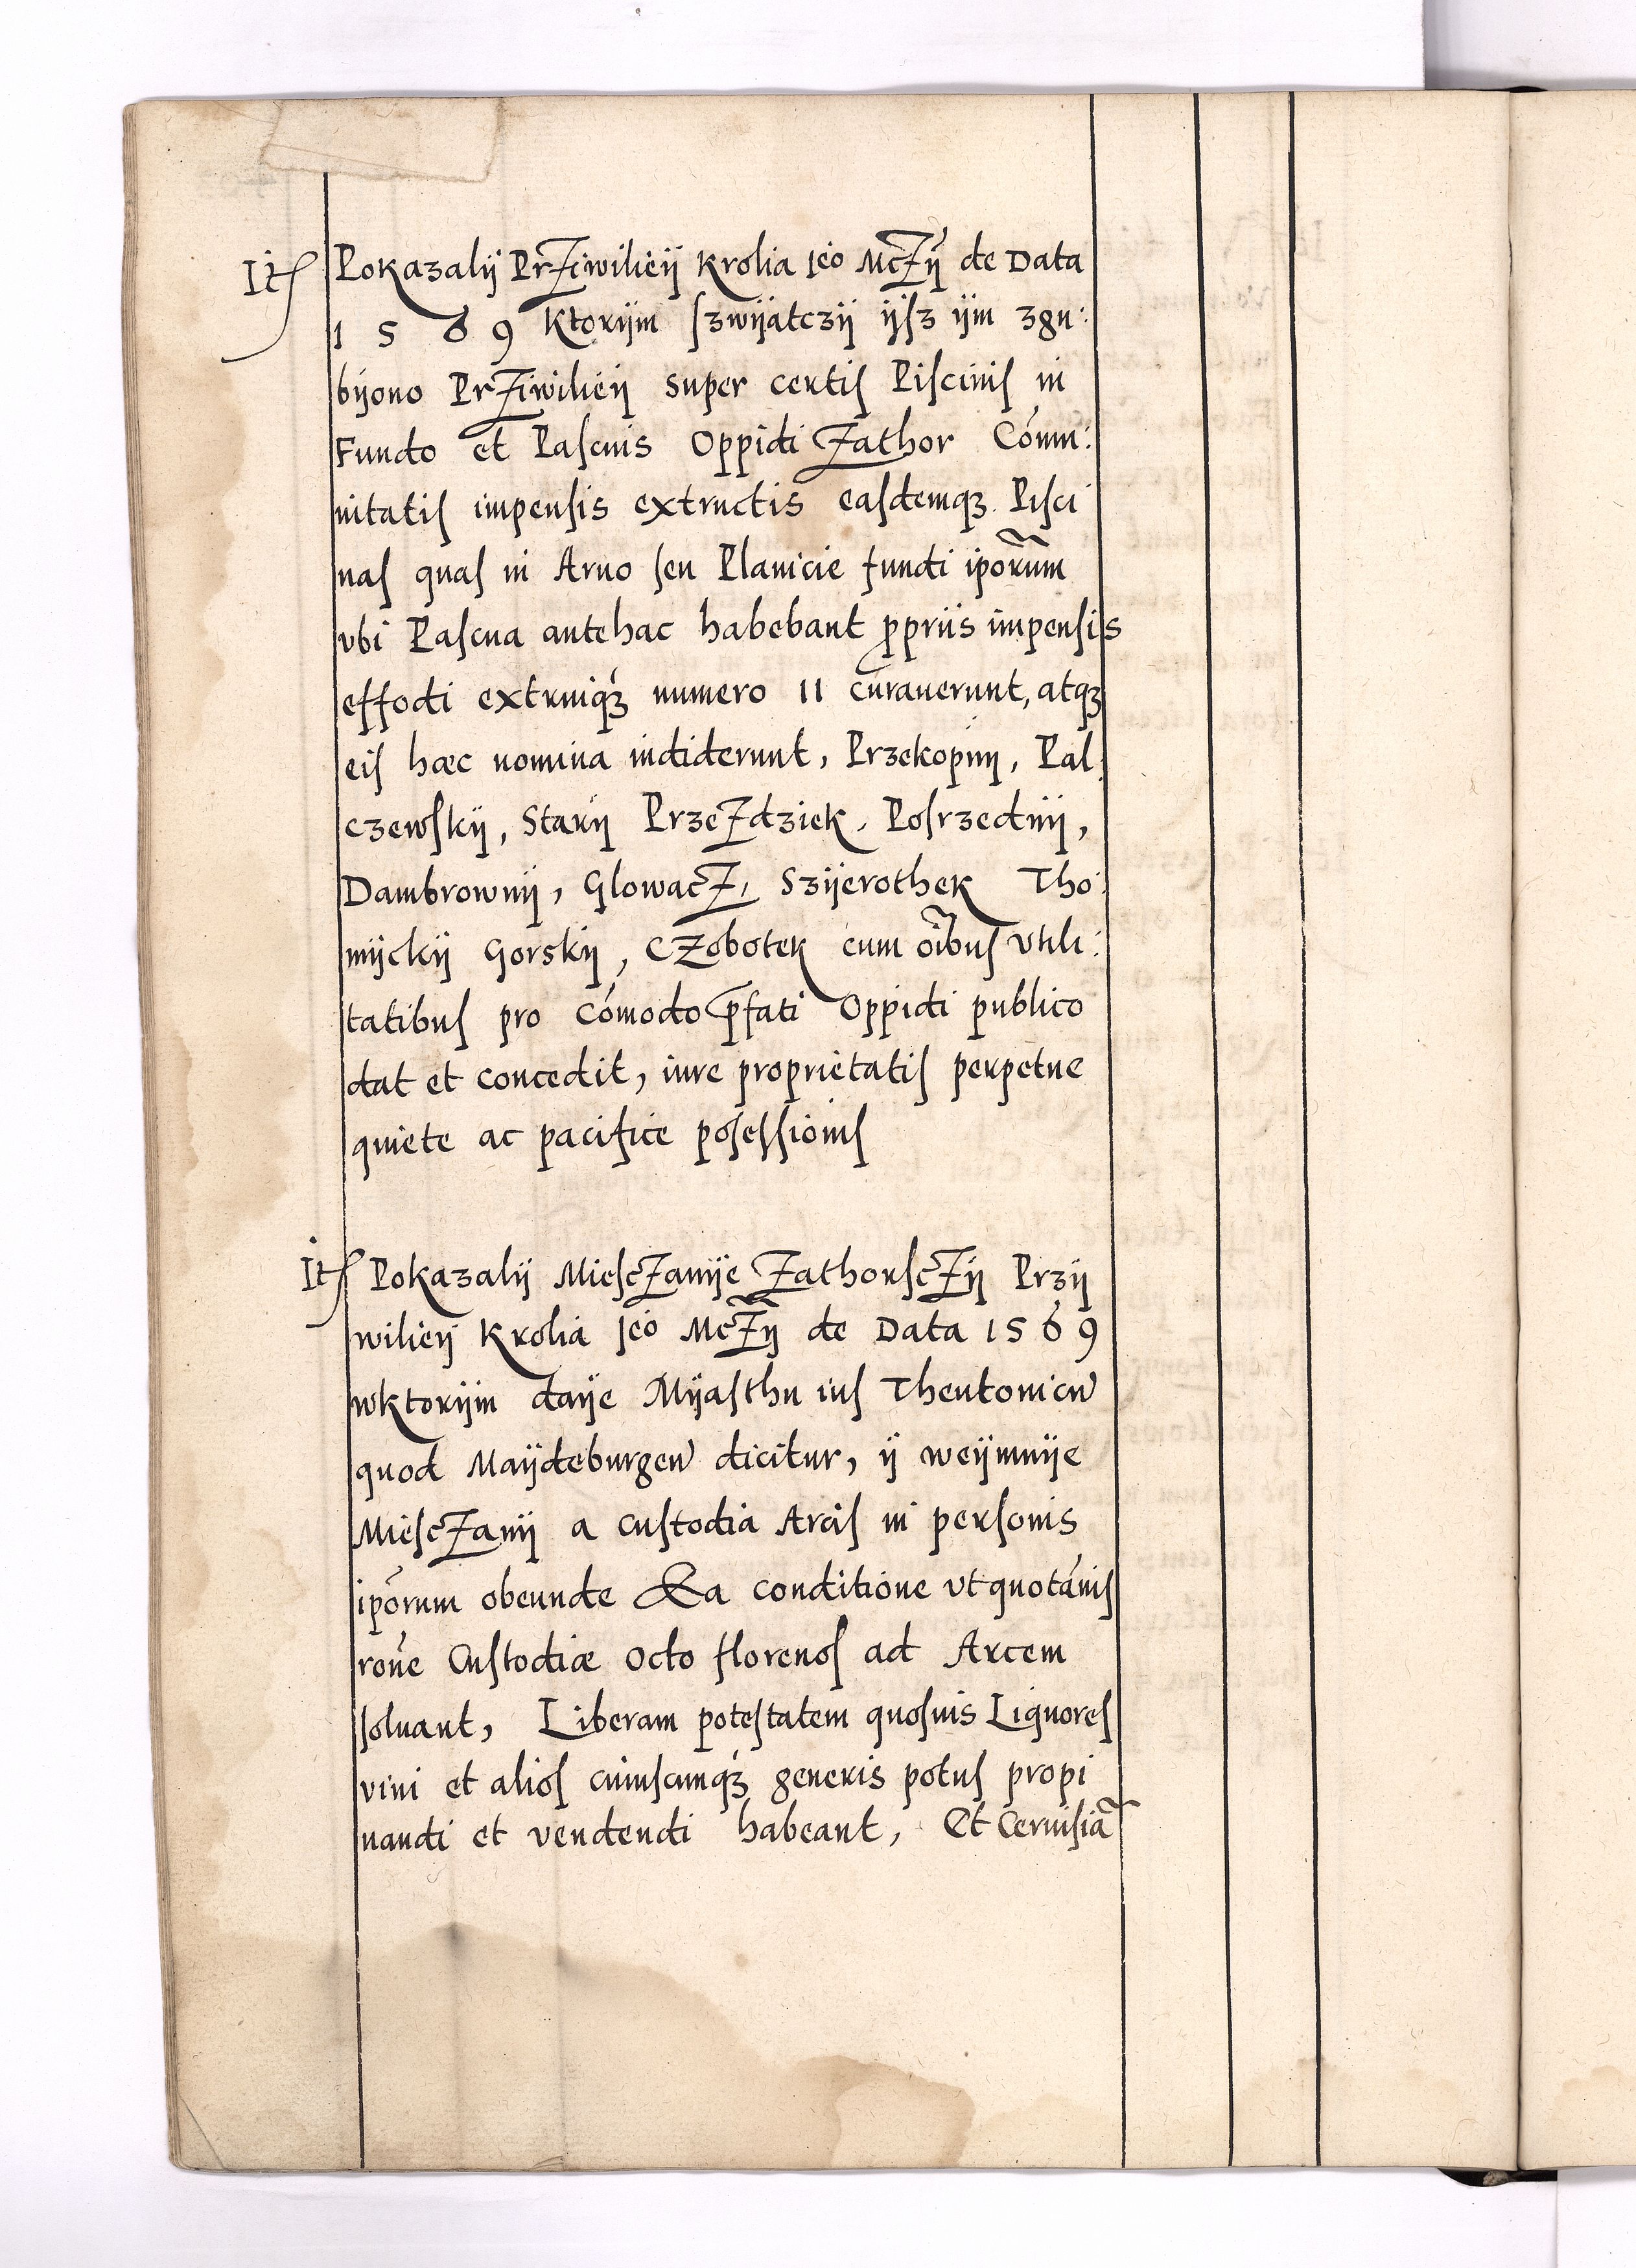 Itſ Pokazalÿ PrZiwilieÿ Krolia Jeo McZÿ de Data
1 5 6 9 Ktorÿm ſzwÿatczÿ ÿſz ÿm zgu:
bÿono PrZiwilieÿ super certiſ Piſciniſ in
Fundo et Paſcuis Oppidi Zathor Cómu:
nitatiſ impenſis extructis eaſdemqꝫ Piſci
naſ quaſ in Aruo ſeu Planicie fundi ipõrum
vbi Paſcua antehac habebant ꝓpriis impenſis
effodi extruiqꝫ numero 11 curauerunt, atqꝫ
eiſ hæc nomina indiderunt, Przekopnÿ, Pal:
czewſkÿ, Starÿ PrzeZdziek, Poſrzednÿ,
Dambrownÿ, GlowacZ, Szÿerothek Tho:
mÿckÿ Gorskÿ, CZobotek cum oĩbuſ vtili:
tatibuſ pro cómodo p̄fati Oppidi publico
dat et concedit, iure proprietatiſ perpetue
quiete ac pacifice poſeſſioniſ
Itſ Pokazalÿ MieſcZanÿe ZathorſcZÿ Przÿ
wilieÿ Krolia Jeo McZÿ de Data 1569
wktorÿm daÿe Mÿaſthu iuſ Theutonicu̅
quod Maÿdeburgen̅ dicitur, ÿ weÿmuÿe
MieſcZanÿ a cuſtodia Arciſ in perſonis
ipórum obeunde Ea conditione vt quotániſ
roňe Cuſtodiæ octo florenoſ ad Arcem
ſoluant, Liberam poteſtatem quoſuis Liquoreſ
vini et alioſ cuiuſcunqꝫ generis potuſ propi
nandi et vendendi habeant, Et Ceruiſiã